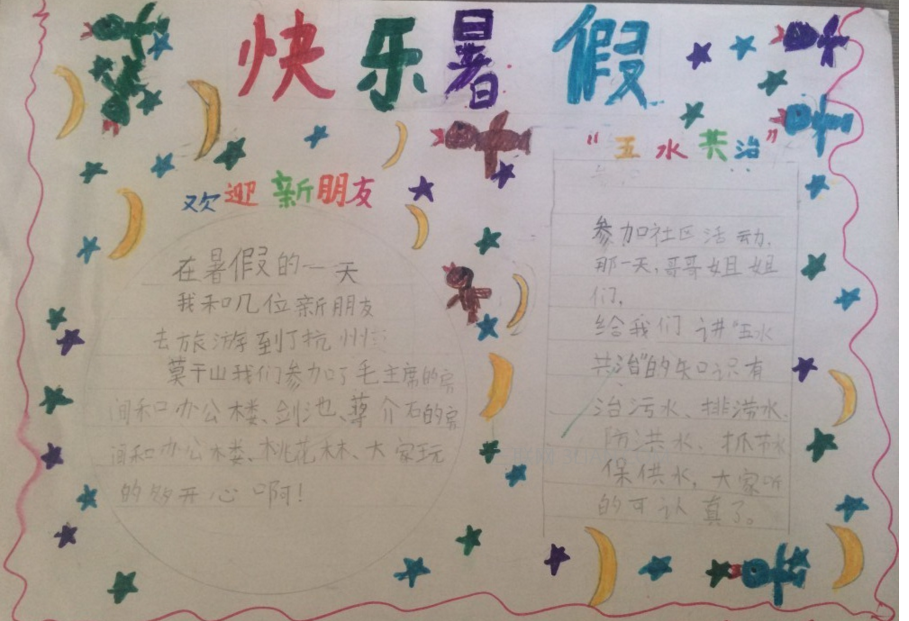 快乐暑假
欢迎新朋友
在暑假的一天
我和几位新朋友
去旅游到了杭州
莫干山我们参加了毛主席的房
间和办公楼、剑池、蒋介石的房
间和办公楼、桃花林、大家玩
的够开心啊!
“五水共治”
参加社区活动,
那一天,哥哥姐姐
们,
给我们讲“五水
共治”的知识有
治污水、排涝水、
防洪水、抓节水
保供水,大家听
的可认真了。